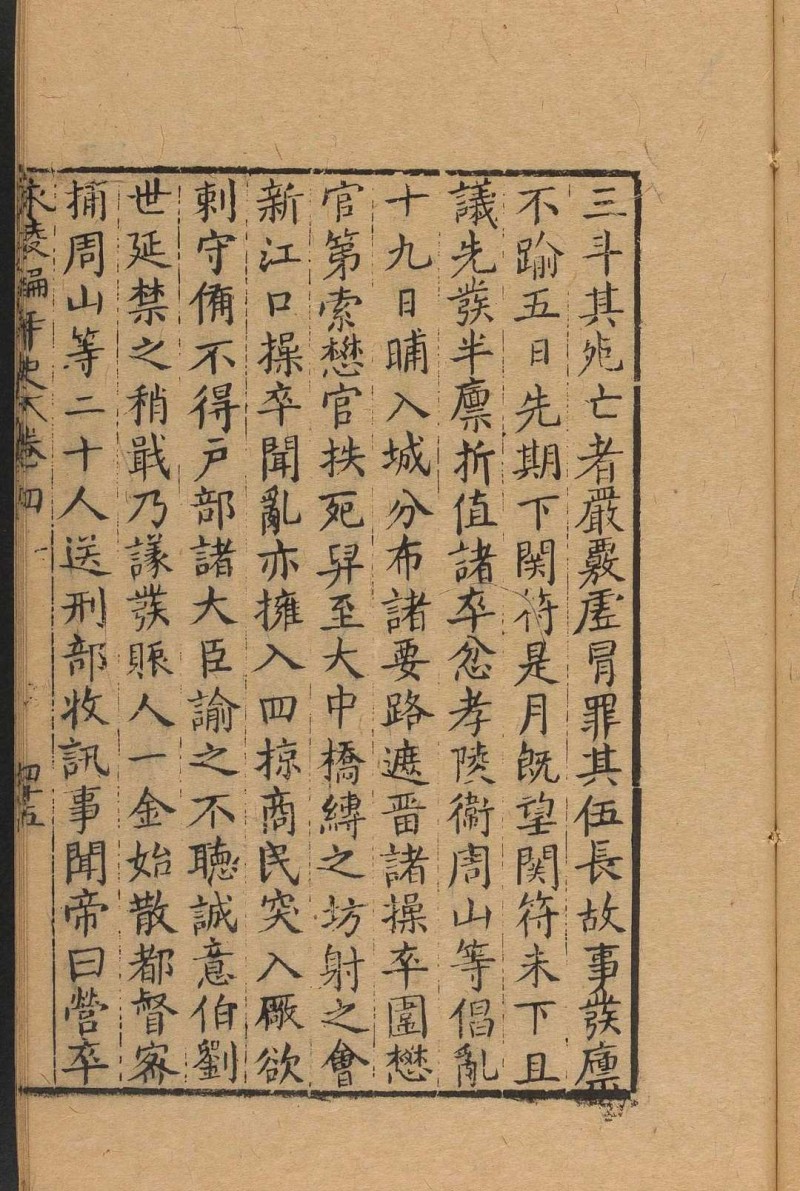 三斗其死亡者嚴覈虛冒罪其伍長故事發廩
不踰五日先期下関符是月既望関符未下且
議先發半廩折值諸卒忿孝陵衛周山等倡亂
十九日晡入城分布諸要路遮畱諸操卒圍懋
官第索懋官抶死舁至大中橋縛之坊射之會
新江口操卒聞亂亦擁入四掠商民突入厰欲
刺守俻不得戶部諸大臣諭之不聽誠意伯劉
世延禁之稍戢乃議發賑人一金始散都督密
捕周山等二十人送刑部收訊事聞帝曰營卒
永陵編年史 卷四 四十五